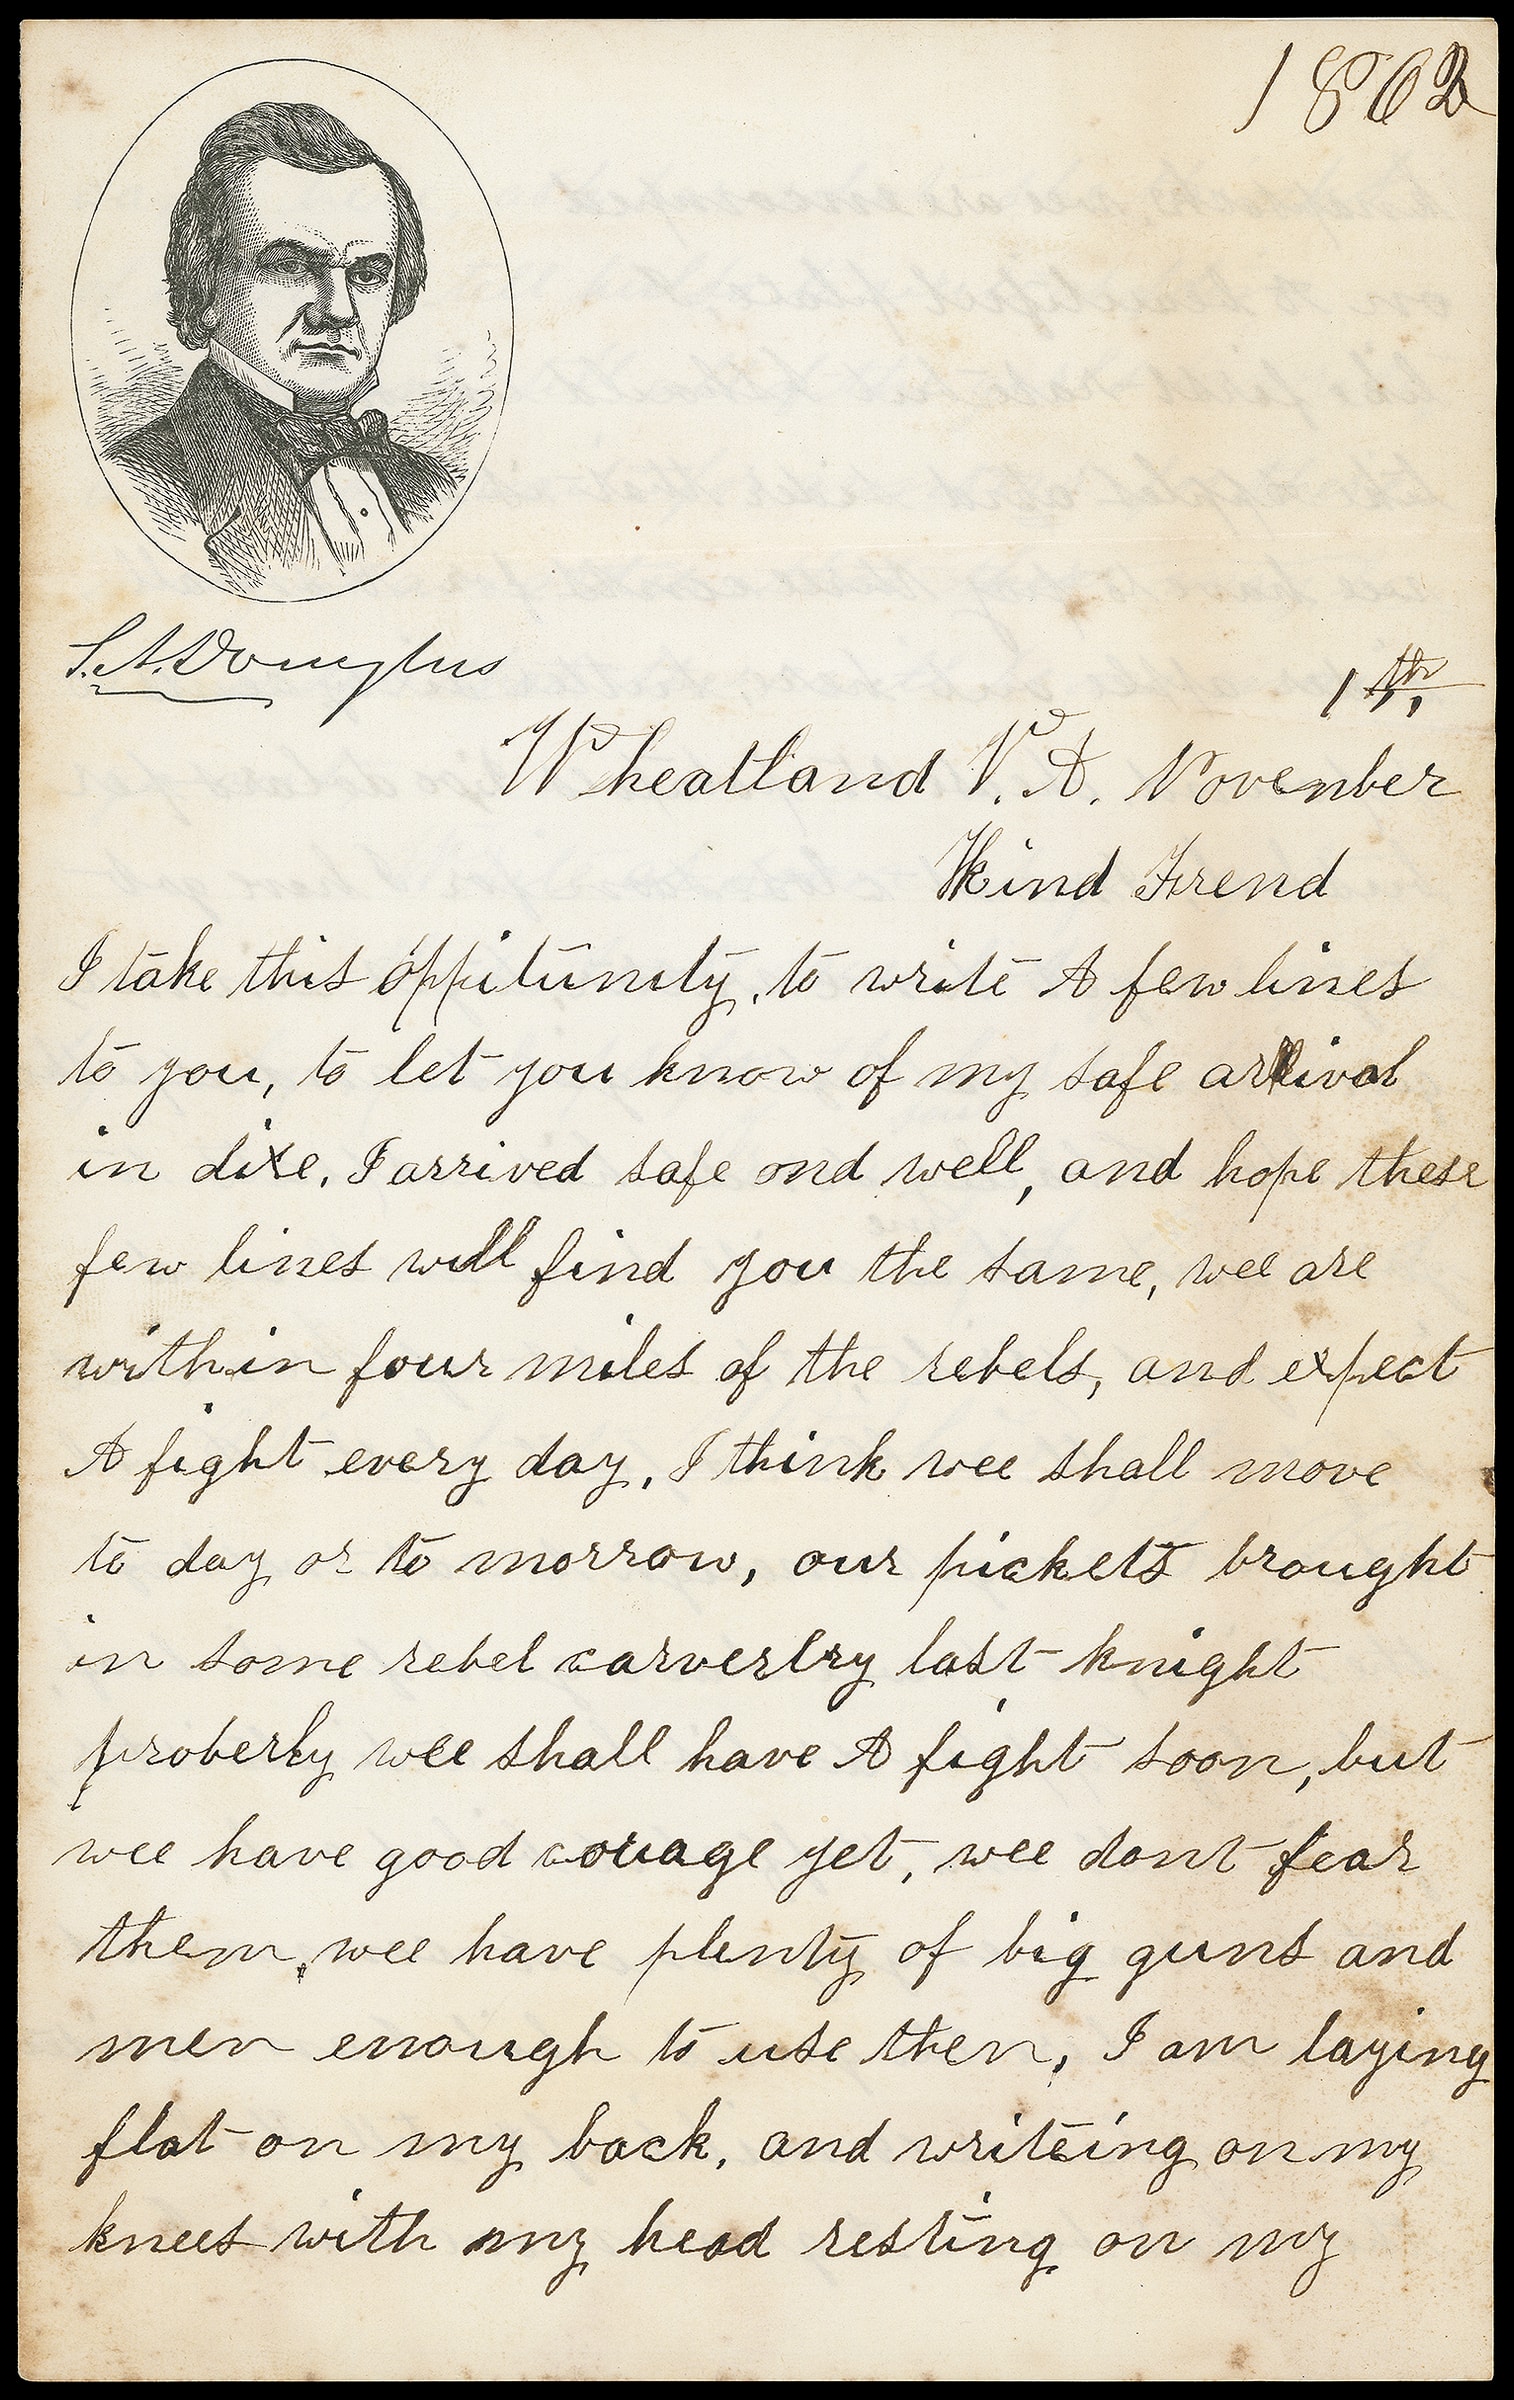 1862
S. A. Douglas
1th,
Wheatland V. A. November
Kind Frend
I take this oppitunity, to write A few lines
to you, to let you know of my safe arrival
in dixe, I arrived safe and well, and hope these
few lines will find you the same, wee are
within four miles of the rebels, and expect
A fight every day, I think wee shall move
to day or to morrow, our pickets brought
in some rebel carverlry last knight
proberly wee shall have A fight soon, but
wee have good courage yet, wee dont fear
them, wee have plenty of big guns and
men enough to use then, I am laying
flat on my back, and writeing on my
knees with my head resting on my